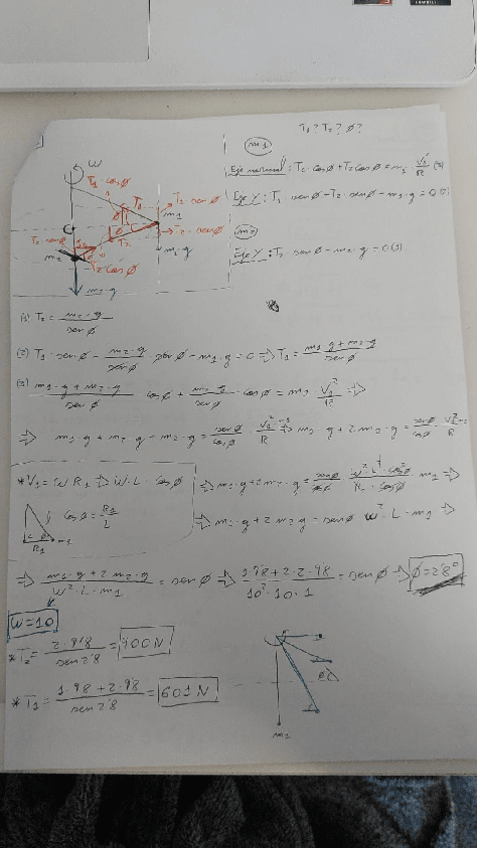 T1? T2? Ø?
m1
Eje normal: T1·cosØ+T2cosØ=m1·V1²/R (3)
Eje Y: T1·senØ-T2·senØ-m1·g=0 (2)
m2
Eje Y: T2·senØ-m2·g=0 (1)
W
T1·cosØ
T1
T1·senØ
m1
T2·senØ
T2
m1·g
T2·senØ
m2
T2·cosØ
m2·g
(1) T2=m2·g/senØ
(2) T1·senØ-m2·g/senØ·senØ-m1·g=0 => T1=m1·g+m2·g/senØ
(3) m1·g+m2·g/senØ·cosØ+m2·g/senØ·cosØ=m1·V1²/R =>
=> m1·g+m2·g+m2·g=senØ/cosØ·V1²/R·m1 => m1·g+2m2·g=senØ/cosØ·V1²/R·m1
*V1=W·R1 => W·L·cosØ
cosØ=R1/L
L
Ø
R1
m1
=> m1·g+2m2·g=senØ/cosØ·W²·L²·cos²Ø/L·cosØ·m1 =>
=> m1·g+2m2·g=senØ·W²·L·m1 =>
=> m1·g+2m2·g/W²·L·m1=senØ => 1·9'8+2·2·9'8/10²·10·1=senØ => Ø=2'8º
W=10
*T2=2·9'8/sen2'8=400N
*T1=1·9'8+2·9'8/sen2'8=601N
m2